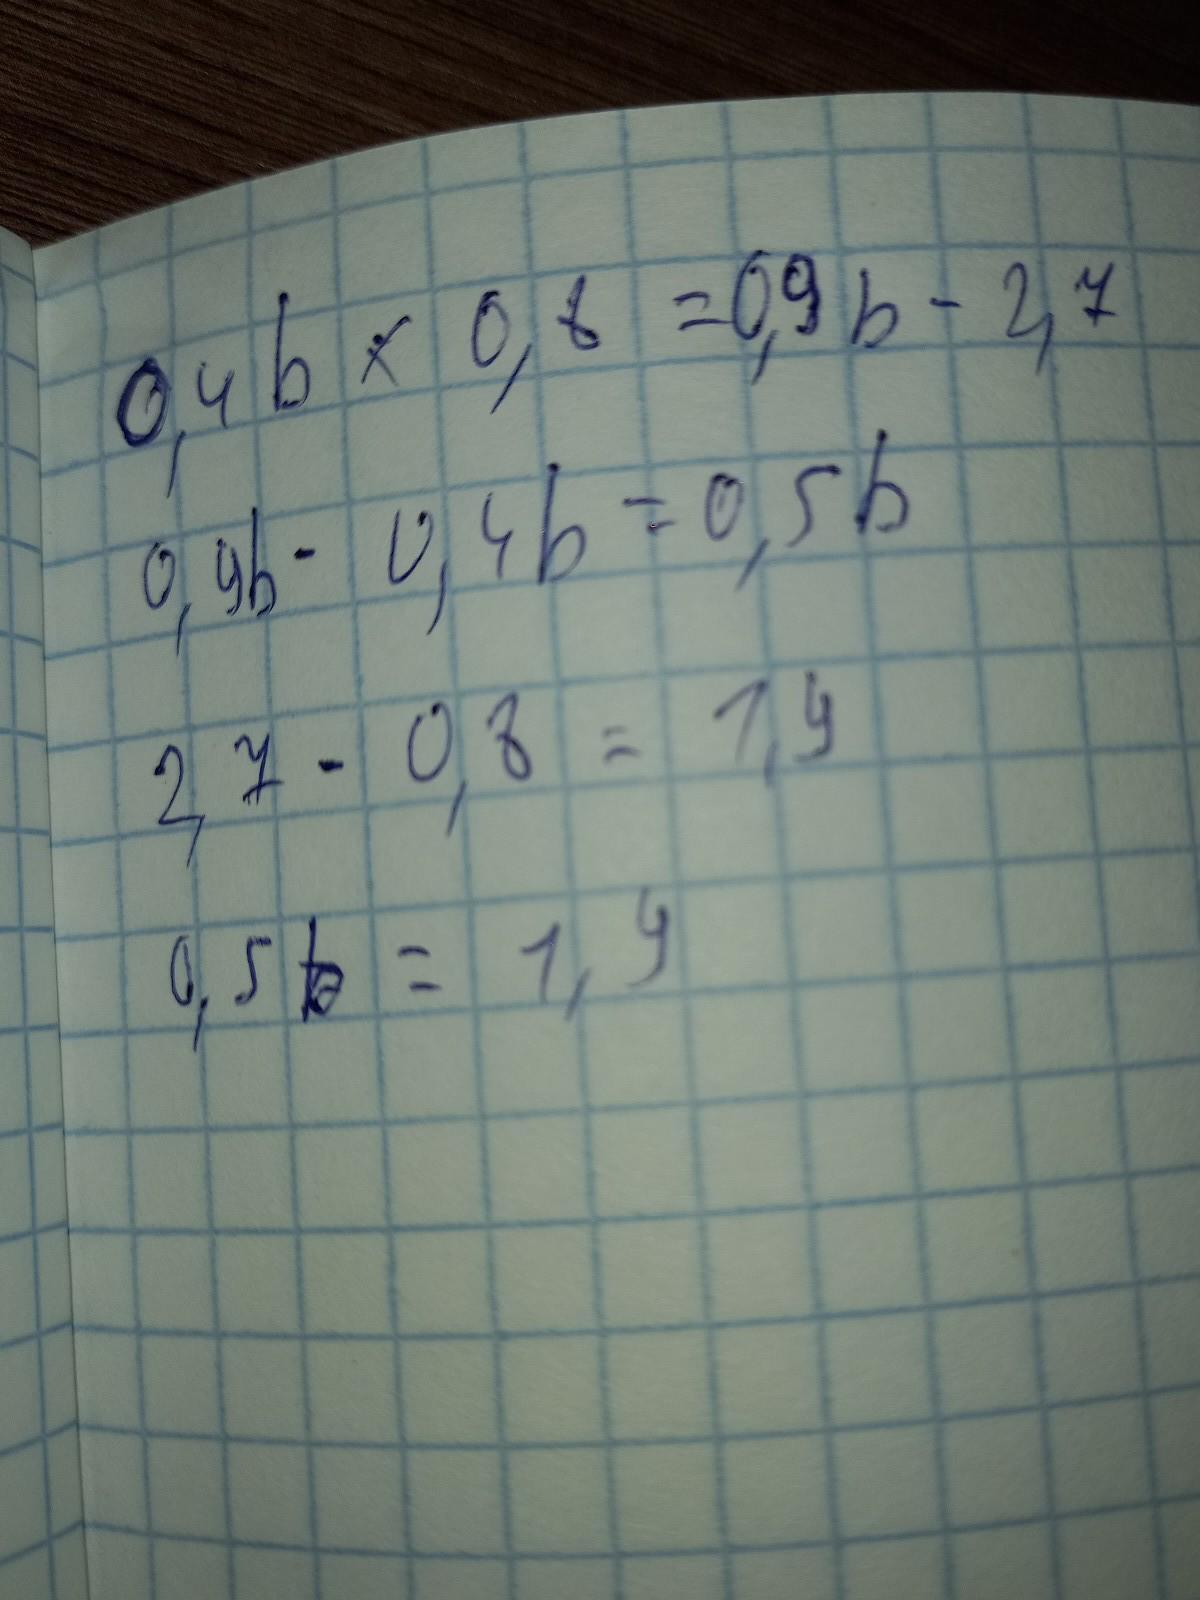 0,4b × 0,8 = 0,9b - 2,7
0,9b - 0,4b = 0,5b
2,7 - 0,8 = 1,9
0,5b = 1,9